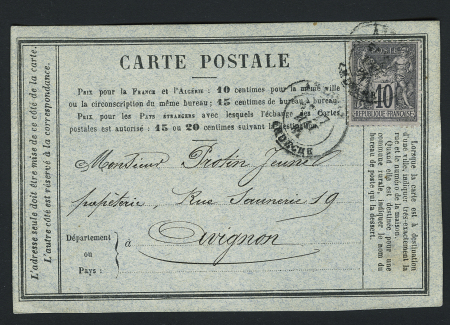 CARTE POSTALE
PRIX pour la FRANCE et l'ALGÉRIE : 10 centimes pour la même ville
ou la circonscription du même bureau ; 15 centimes de bureau à bureau.
PRIX pour les PAYS ÉTRANGERS avec lesquels l'échange des Cartes
postales est autorisé : 15 ou 20 centimes suivant la destination.
POSTES
10
REPUBLIQUE FRANÇAISE
ARDECHE
Monsieur Protin Jeunel
papéterie, Rue Saunerie 19
à Avignon
Département
ou
Pays :
L'adresse seule doit être mise de ce côté de la carte.
L'autre côté est réservé à la correspondance.
Lorsque la carte est à destination
d'une ville, indiquer très-exactement la
rue et le numéro de la maison.
Quand elle est destinée pour une
commune rurale, indiquer le nom du
bureau de poste qui la dessert.